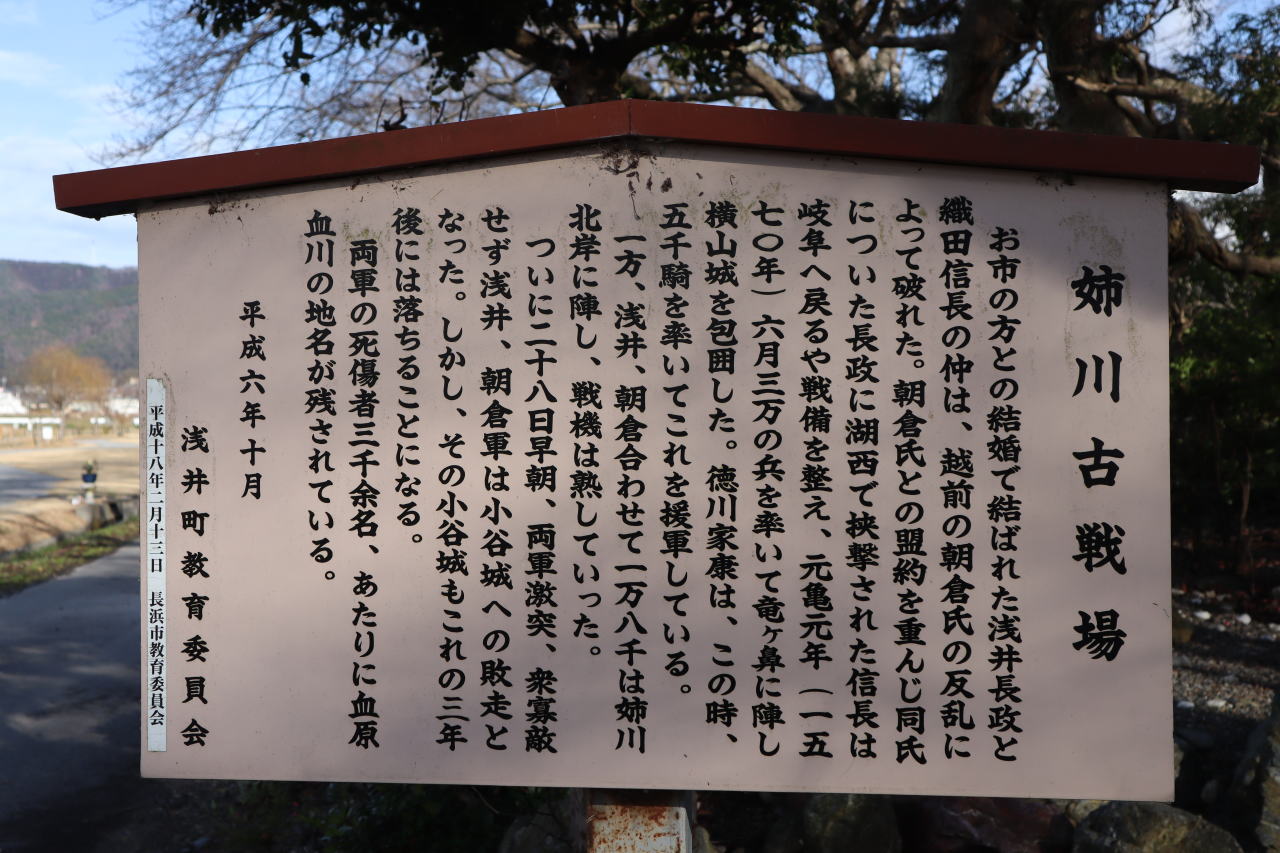 姉川古戦場
お市の方との結婚で結ばれた浅井長政と
織田信長の仲は、越前の朝倉氏の反乱に
よって破れた。朝倉氏との盟約を重んじ同氏
についた長政に湖西で挟撃された信長は
岐阜へ戻るや戦備を整え、元亀元年（一五
七〇年）六月三万の兵を率いて竜ヶ鼻に陣し
横山城を包囲した。徳川家康は、この時、
五千騎を率いてこれを援軍している。
一方、浅井、朝倉合わせて一万八千は姉川
北岸に陣し、戦機は熟していった。
ついに二十八日早朝、両軍激突、衆寡敵
せず浅井、朝倉軍は小谷城への敗走と
なった。しかし、その小谷城もこれの三年
後には落ちることになる。
両軍の死傷者三千余名、あたりに血原
血川の地名が残されている。
平成六年十月
浅井町教育委員会
平成十八年二月十三日 長浜市教育委員会